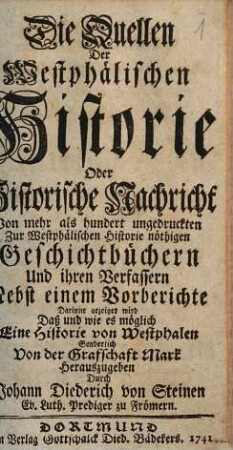 1
Die Quellen
Der
Westphälischen
Historie
Oder
Historische Nachricht
Von mehr als hundert ungedruckten
Zur Westphälischen Historie nöthigen
Geschichtbüchern
Und ihren Verfassern
Nebst einem Vorberichte
Darinne gezeiget wird
Daß und wie es möglich
Eine Historie von Westphalen
Sonderlich
Von der Grafschaft Mark
Herauszugeben
Durch
Johann Diederich von Steinen
Ev. Luth. Prediger zu Frömern.
DORTMUND
Verlag Gottschalck Died. Bädekers. 1741